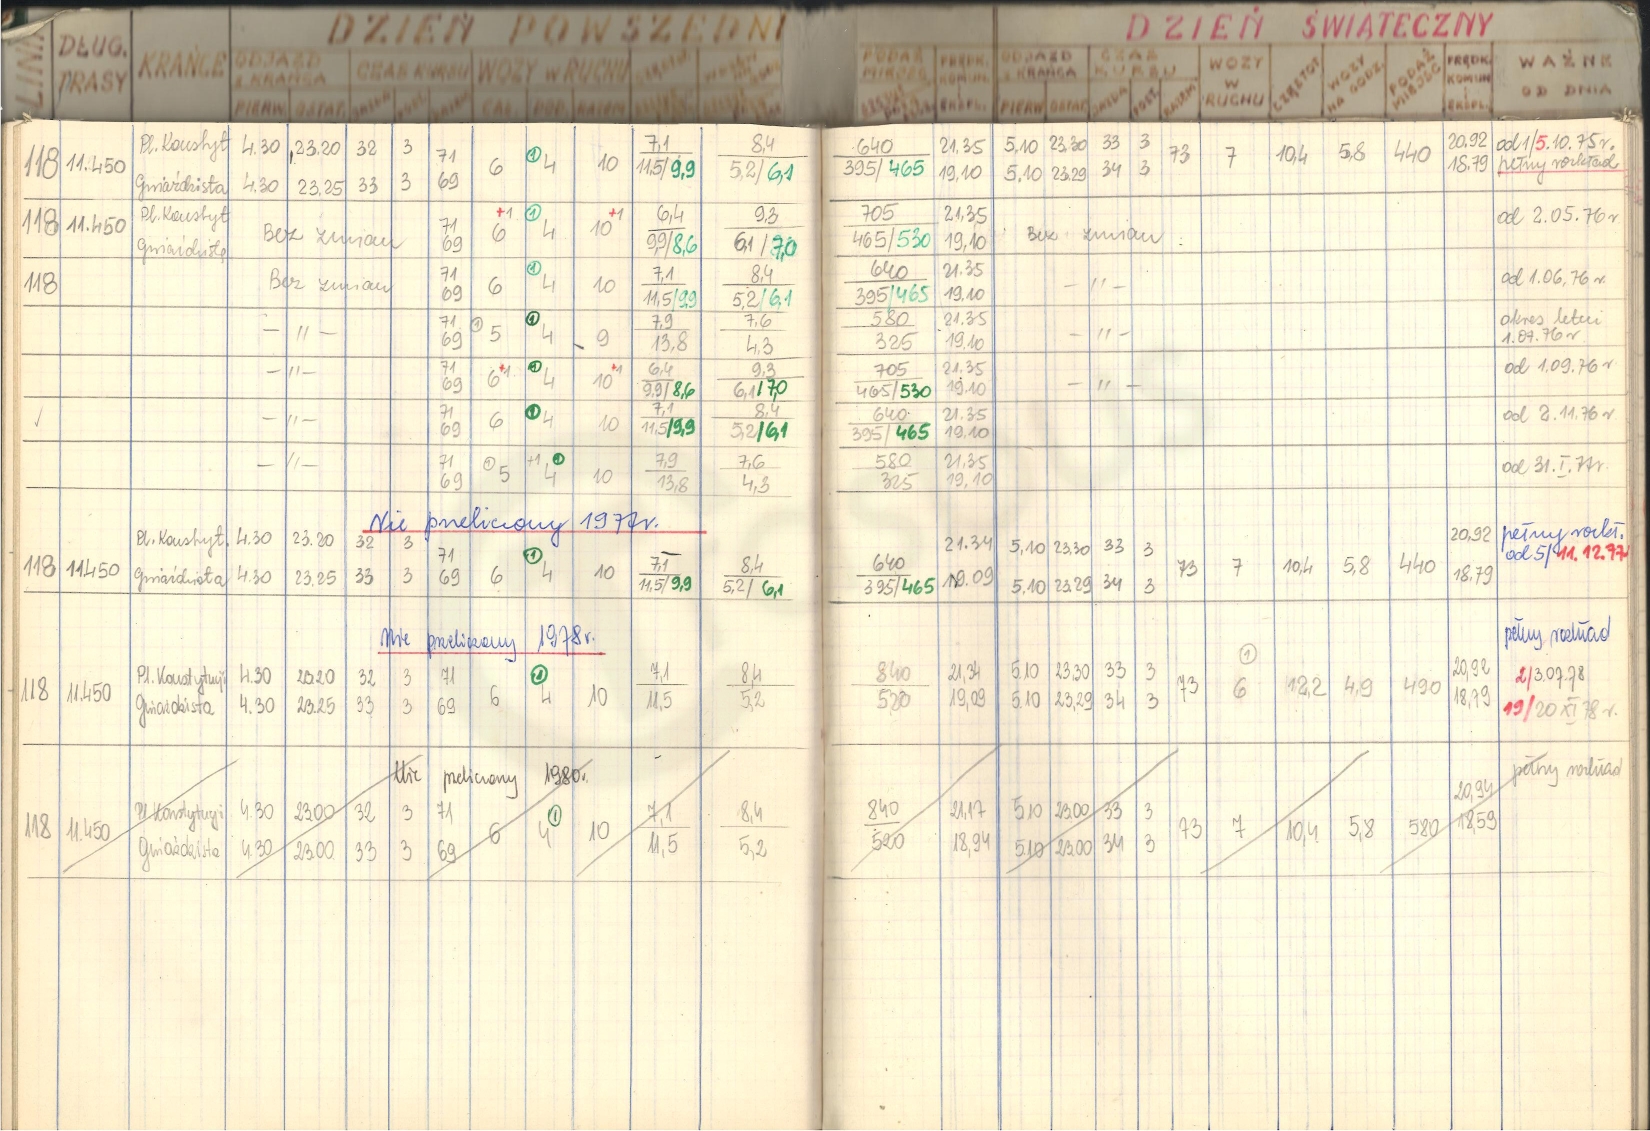 DZIEŃ POWSZEDNI DZIEŃ ŚWIĄTECZNY
LINIA DŁUG. TRASY KRAŃCE ODJAZD Z KRAŃCA CZAS KURSU WOZY W RUCHU PODAŻ MIEJSC PRĘDK. KOMUN. EKSPL. ODJAZD Z KRAŃCA CZAS KURSU WOZY W RUCHU CZĘSTOT. WOZY NA GODZ. PODAŻ MIEJSC PRĘDK. KOMUN. EKSPL. WAŻNE OD DNIA
PIERW. OSTAT. JAZDA POST. RAZEM CAŁ. DOD. RAZEM PIERW. OSTAT. JAZDA POST. RAZEM
Pl. Konstyt 4.30 23.20 32 3 71 7,1 8,4 640 21.35 5,10 23.30 33 3 20,92 od 1/5.10.75 r.
118 11.450 6 ① 4 10 73 7 10,4 5,8 440
Gwiaździsta 4.30 23.25 33 3 69 11,5/9,9 5,2/6,1 395/465 19,10 5.10 23.29 34 3 18.79 pełny rozkład
Pl. Konstyt 71 +1 ① +1 6,4 9,3 705 21,35 od 2.05.76 r
118 11.450 Bez zmian 6 4 10 Bez zmian
Gwiaździsta 69 9,9/8,6 6,1/7,0 465/530 19,10
118 Bez zmian 71 6 ① 4 10 7,1 8,4 640 21.35 — 〃 — od 1.06.76 r.
69 11,5/9,9 5,2/6,1 395/465 19.10
— 〃 — 71 ① 5 ① 4 9 7,9 7,6 580 21.35 — 〃 — okres letni
69 13,8 4,3 325 19.10 1.07.76 r
— 〃 — 71 6 +1 ① 4 10 +1 6,4 9,3 705 21.35 — 〃 — od 1.09.76 r
69 9,9/8,6 6,1/7,0 465/530 19.10
— 〃 — 71 6 ① 4 10 7,1 8,4 640 21.35 od 2.11.76 r
69 11,5/9,9 5,2/6,1 395/465 19.10
— 〃 — 71 ① 5 +1 ① 4 10 7,9 7,6 580 21.35 od 31.I.77r.
69 13,8 4,3 325 19,10
Nie przeliczony 1977r.
Pl. Konstyt. 4.30 23.20 32 3 71 7,1 8,4 640 21.34 5,10 23,30 33 3 20,92 pełny rozkł.
118 11.450 6 ① 4 10 73 7 10,4 5,8 440 od 5/11.12.77
Gwiaździsta 4.30 23.25 33 3 69 11,5/9,9 5,2/6,1 395/465 19.09 5.10 23.29 34 3 18,79
Nie przeliczony 1978r. pełny rozkład
Pl. Konstytucji 4.30 23.20 32 3 71 7,1 8,4 840 21,34 5.10 23.30 33 3 ① 20,92 2/3.07.78
118 11.450 6 ① 4 10 73 6 12,2 4,9 490
Gwiaździsta 4.30 23.25 33 3 69 11,5 5,2 520 19,09 5.10 23,29 34 3 18,79 19/20 XI 78 r.
Nie przeliczony 1980r. pełny rozkład
Pl Konstytucji 4.30 23.00 32 3 71 7,1 8,4 840 21,17 5.10 23.00 33 3 20,94
118 11.450 6 4 ① 10 73 7 10,4 5,8 580
Gwiaździsta 4.30 23.00 33 3 69 11,5 5,2 520 18,94 5.10 23.00 34 3 18,59